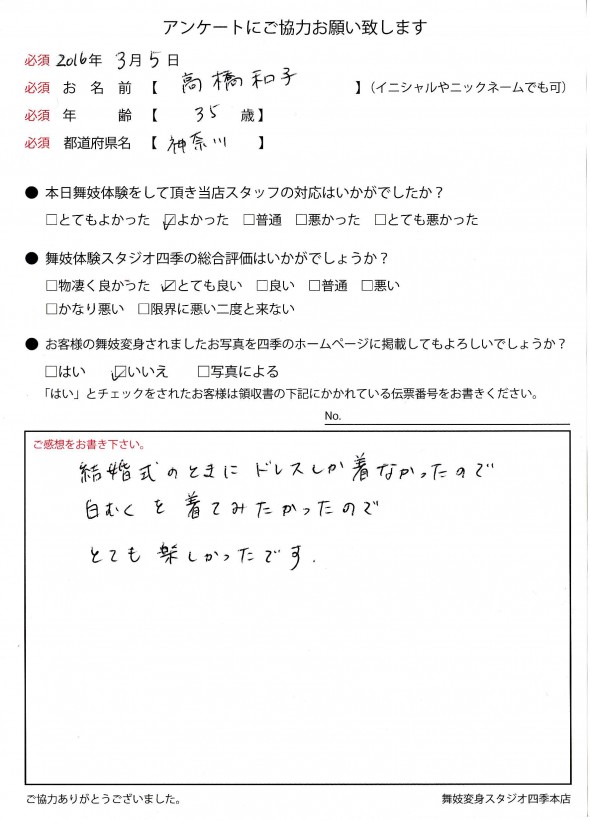 アンケートにご協力お願い致します
必須 2016年 3月5日
必須 お名前 【 高橋和子 】（イニシャルやニックネームでも可）
必須 年齢 【 35 歳】
必須 都道府県名 【 神奈川 】
● 本日舞妓体験をして頂き当店スタッフの対応はいかがでしたか？
□とてもよかった ☑よかった □普通 □悪かった □とても悪かった
● 舞妓体験スタジオ四季の総合評価はいかがでしょうか？
□物凄く良かった ☑とても良い □良い □普通 □悪い
□かなり悪い □限界に悪い二度と来ない
● お客様の舞妓変身されましたお写真を四季のホームページに掲載してもよろしいでしょうか？
□はい ☑いいえ □写真による
「はい」とチェックをされたお客様は領収書の下記にかかれている伝票番号をお書きください。
No.
ご感想をお書き下さい。
結婚式のときにドレスしか着なかったので
白むくを着てみたかったので
とても楽しかったです.
ご協力ありがとうございました。
舞妓変身スタジオ四季本店